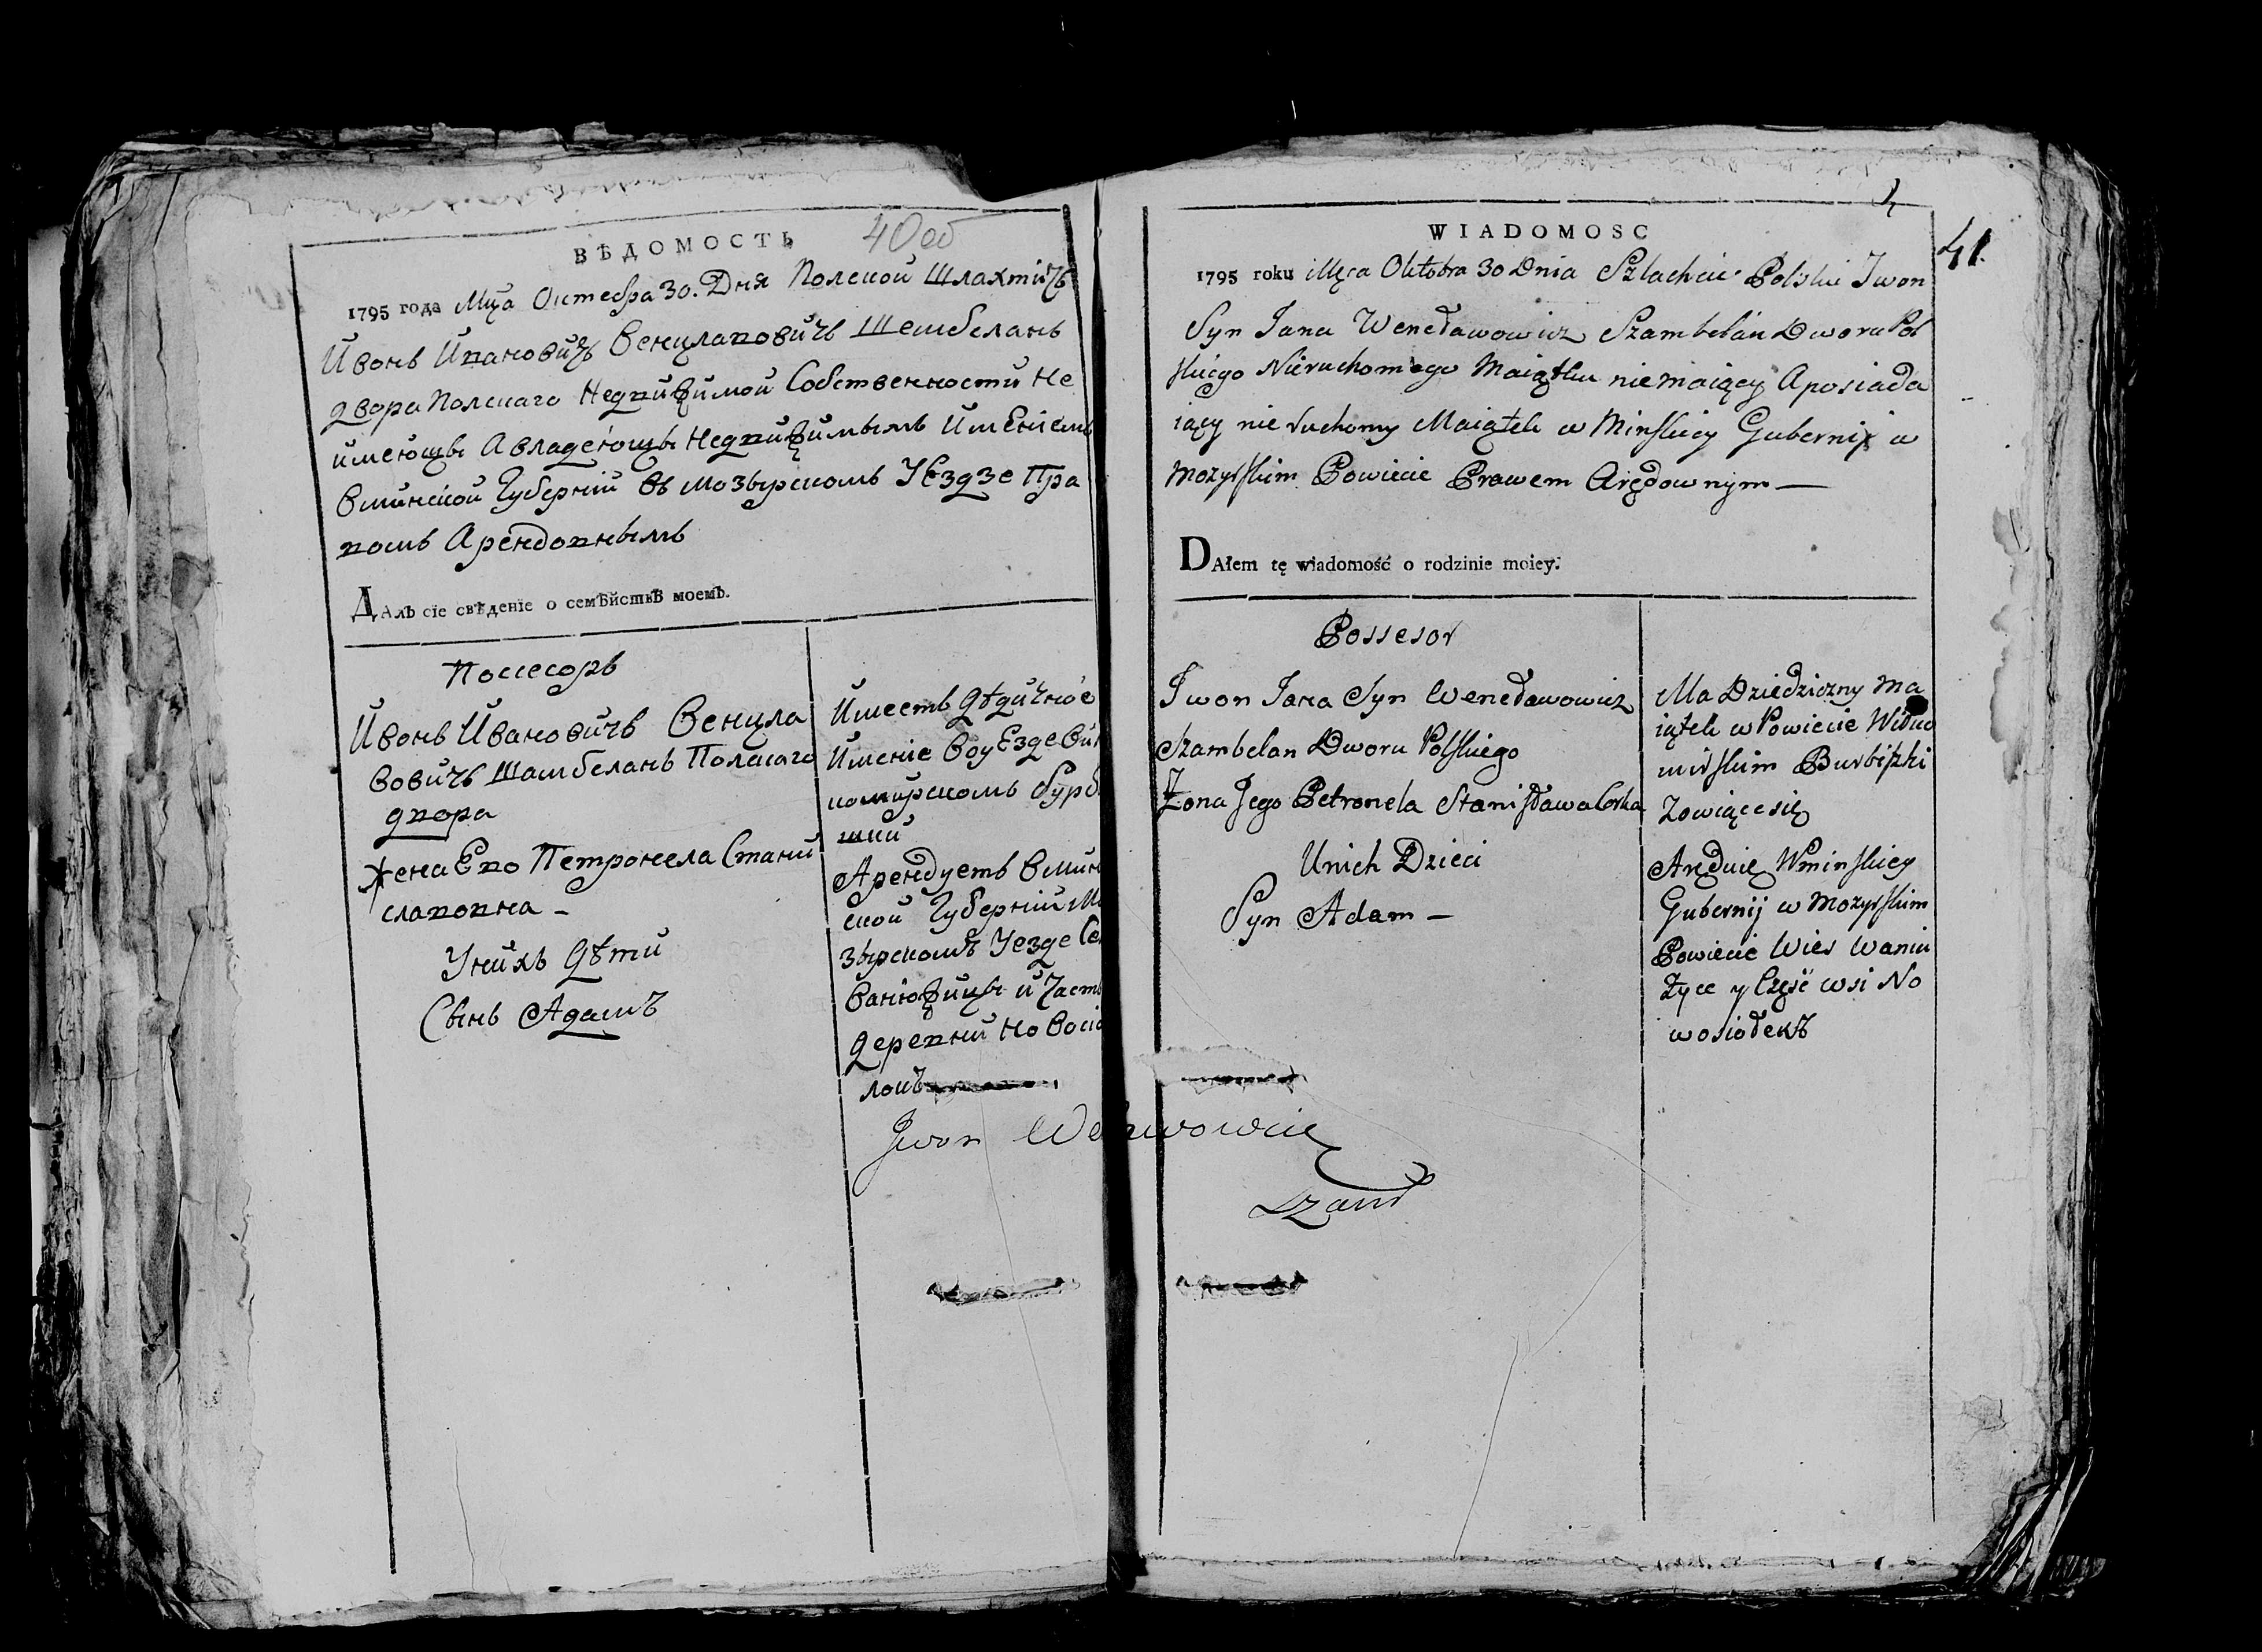 ВѢДОМОСТЬ
40 об
1795 года Мца Октебра 30. Дня Полской Шляхтичъ
Ивонъ Ивановичъ Венцлавовичъ Шембеланъ
двора Полскаго Недвижимой Собственности Не
имеющы А владеющы Недвижимымъ Имениемъ
вминской Губерніи въ мозырскомъ Уездзе Пра
вомъ Арендовнымъ
ДАлъ сіе свѣденіе о семѣйствѣ моемъ.
Посесоръ
Ивонъ Ивановичъ Венцла
вовичъ Шамбеланъ Полскаго
двора
жена Его Петронела Стани
славовна -
Унихъ Дѣти
Сынъ Адамъ
Имеетъ Дѣдично́е
Имение воуЕзде Ви
комирскомъ Бурб
шки
Арендуетъ вмин
ской Губерніи М
зырскомъ Уезде Се
Ванюжицы и Част
деревни Новосіо
локъ
WIADOMOSC
41.
1795 roku Mca Oktobra 30 Dnia Szlachcic Polski Iwon
Syn Jana Wencławowicz Szambelan Dworu Pol
skiego Nieruchomego Maiątku niemaiący A posiada
iący nie ruchomy Maiątek w Minskiey Gubernij w
Mozyrskim Powiecie Prawem Arędownym —
DAłem tę wiadomość o rodzinie moiey:
Possesor
Iwon Jana Syn Wencławowicz
Szambelan Dworu Polskiego
Żona Jego Petronela Stanisława Corka
Unich Dzieci
Syn Adam —
Ma Dziedziczny Ma
iątek w Powiecie Wiłko
mirskim Burbiszki
Zowiące się
Aręduię Wminskiey
Gubernij w Mozyrskim
Powiecie Wies Waniu
życe y Częsć wsi No
wosiołekъ
Iwon We wowicz